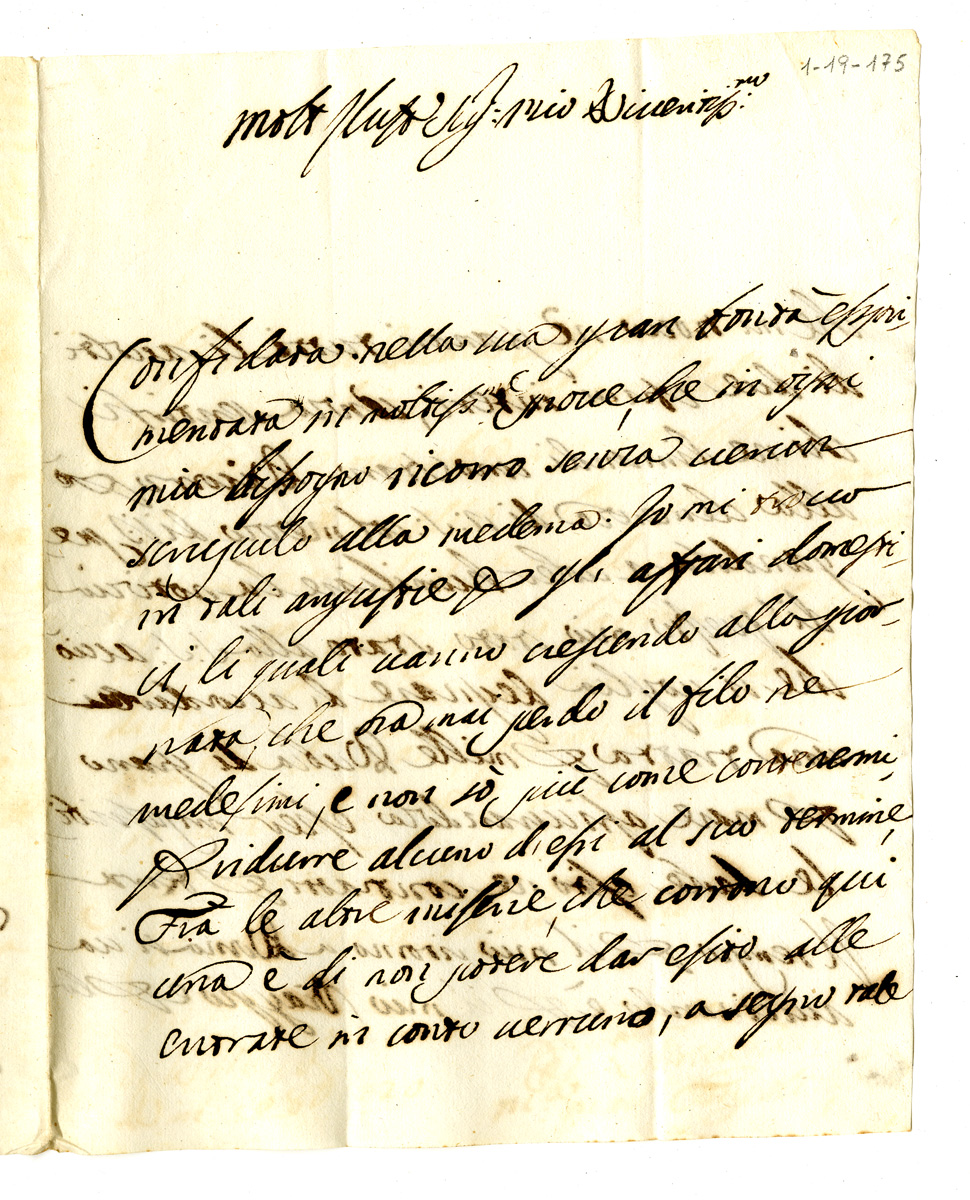 1-19-175
Molt Illust.e Sig.r mio Riueritiss.mo
Confidata nella sua gran bontà esperi-
mentata in moltiss.e proue, che in ogni
mio bisogno ricorro senza uerun
scrupulo alla medema. Io mi trouo
in tali angustie p gli affari domesti-
ci, li quali uanno crescendo alla gior-
nata, che orà mai perdo il filo ne
medesimi, e non sò più come contenermi
p ridurre alcuno d'essi al suo termine,
Frà le altre miserie, che corrono qui
una è di non potere dar esito alle
entrate in conto ueruno, a segno tale